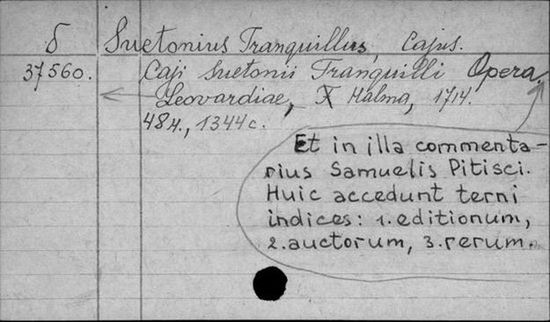 б Suetonius Tranquillus, Cajus.
37560. Caji Suetonii Tranquilli Opera.
Leovardiae, F Halma, 1714.
48н., 1344с.
Et in illa commenta-
rius Samuelis Pitisci.
Huic accedunt terni
indices: 1. editionum,
2. auctorum, 3. rerum.